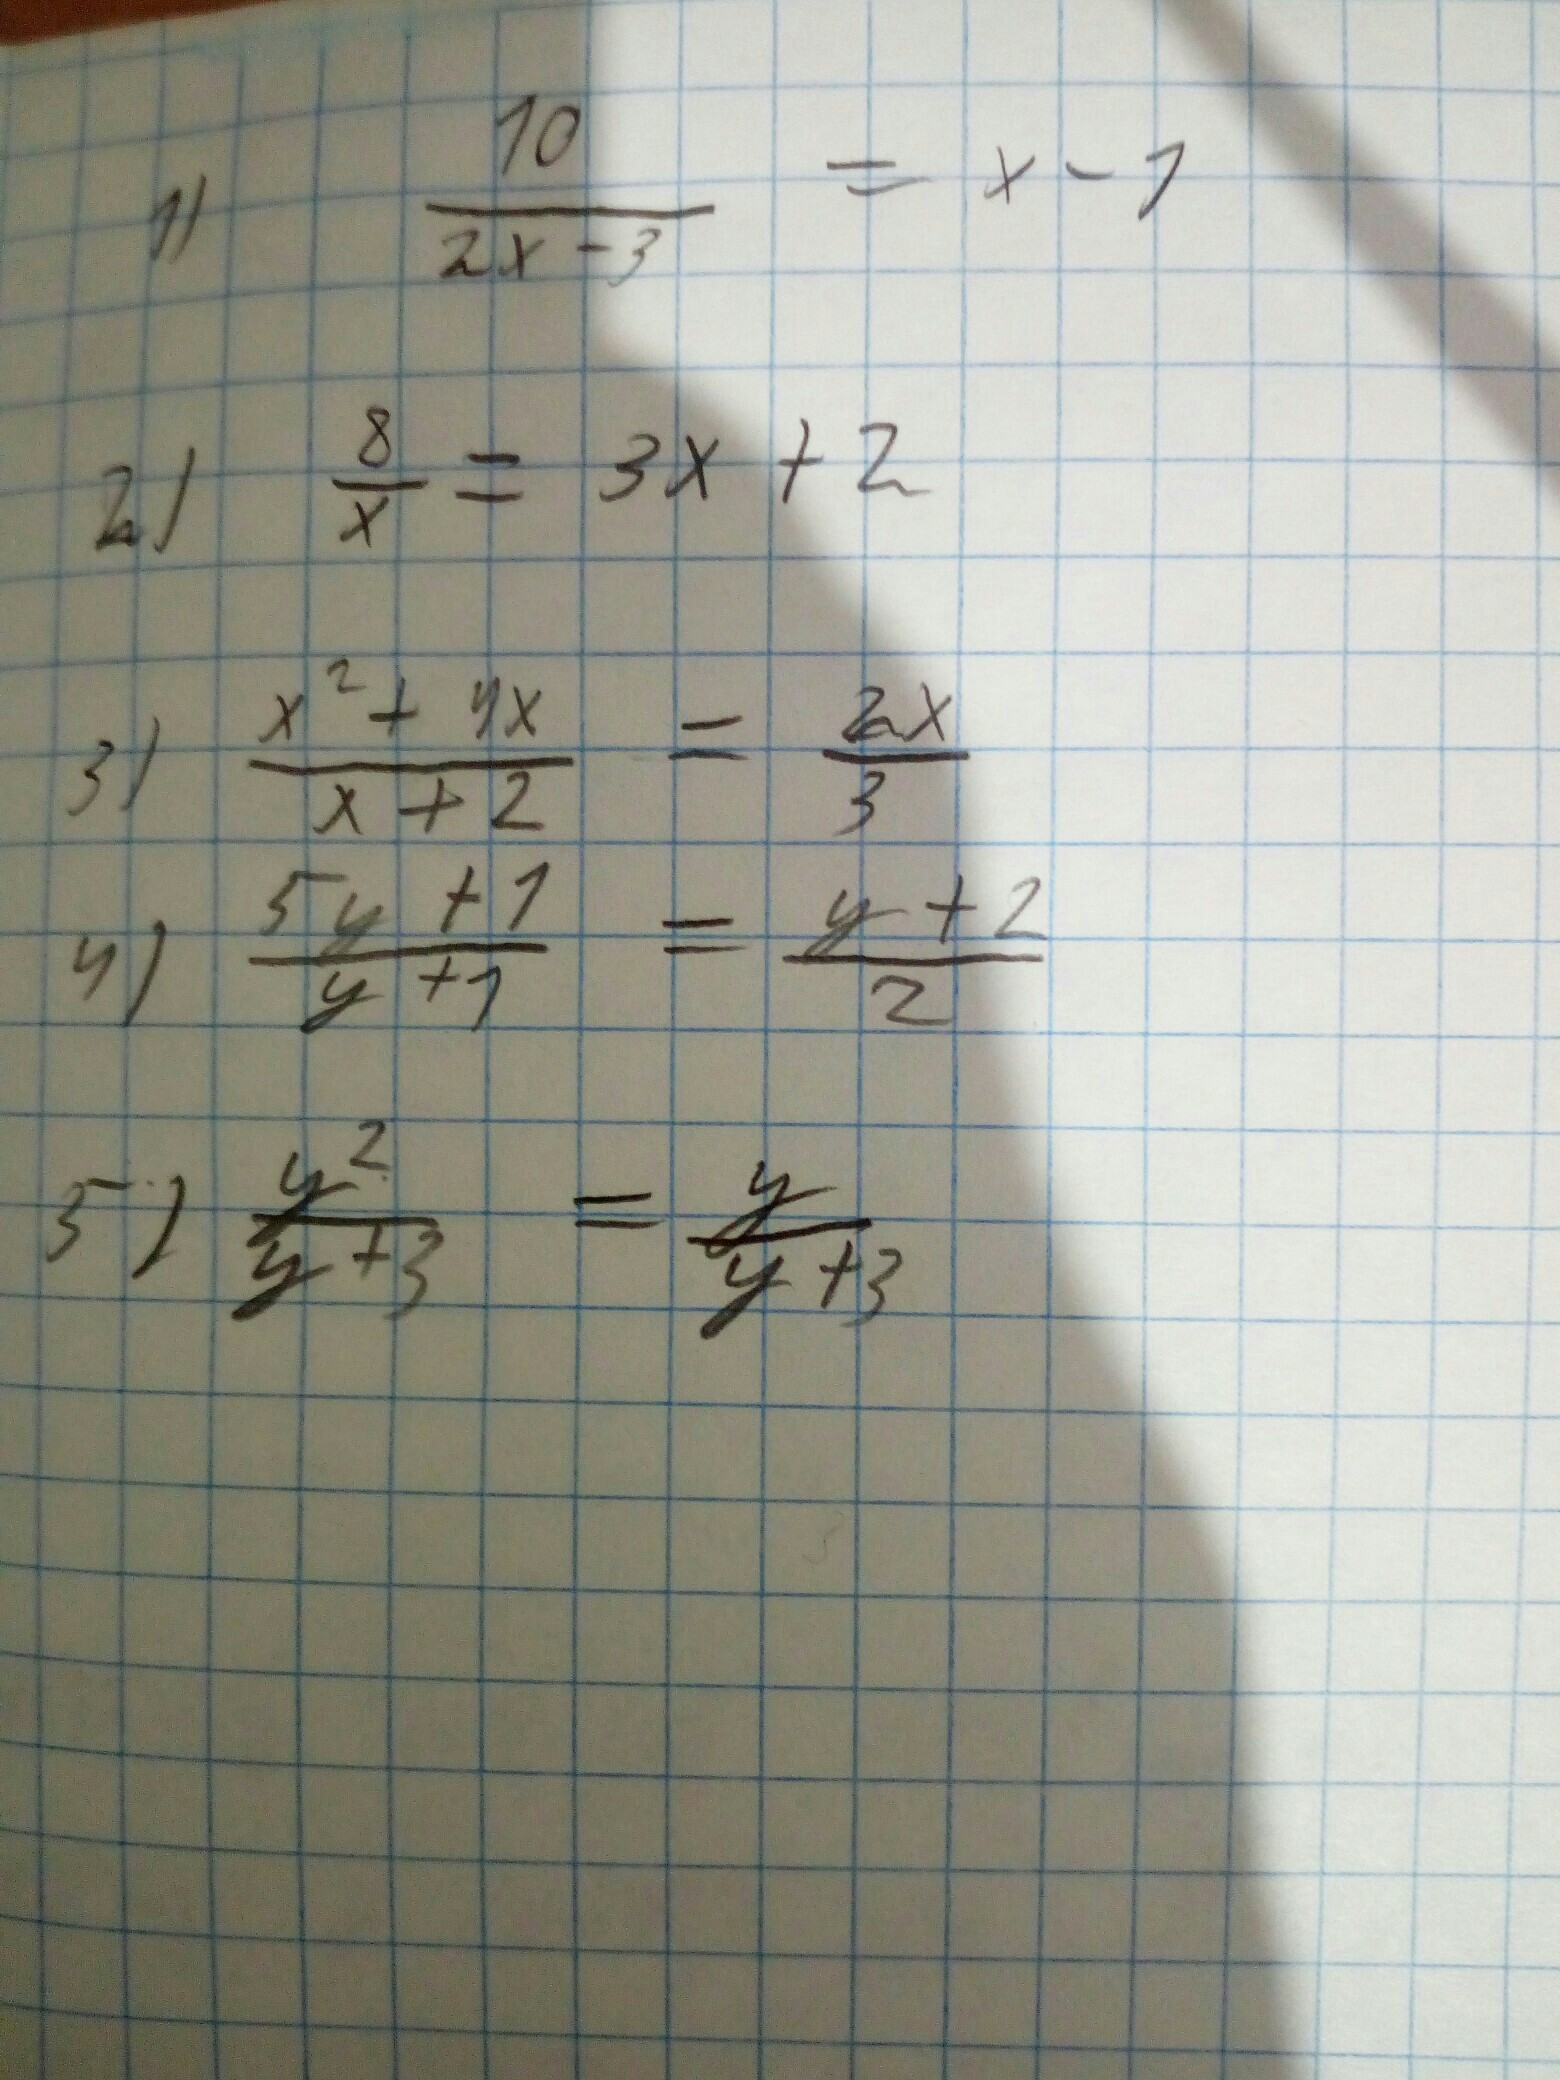 1) 10/(2x - 3) = x - 1
2) 8/x = 3x + 2
3) (x² + 4x)/(x + 2) = 2x/3
4) (5y + 1)/(y + 1) = (y + 2)/2
5) y²/(y + 3) = y/(y + 3)